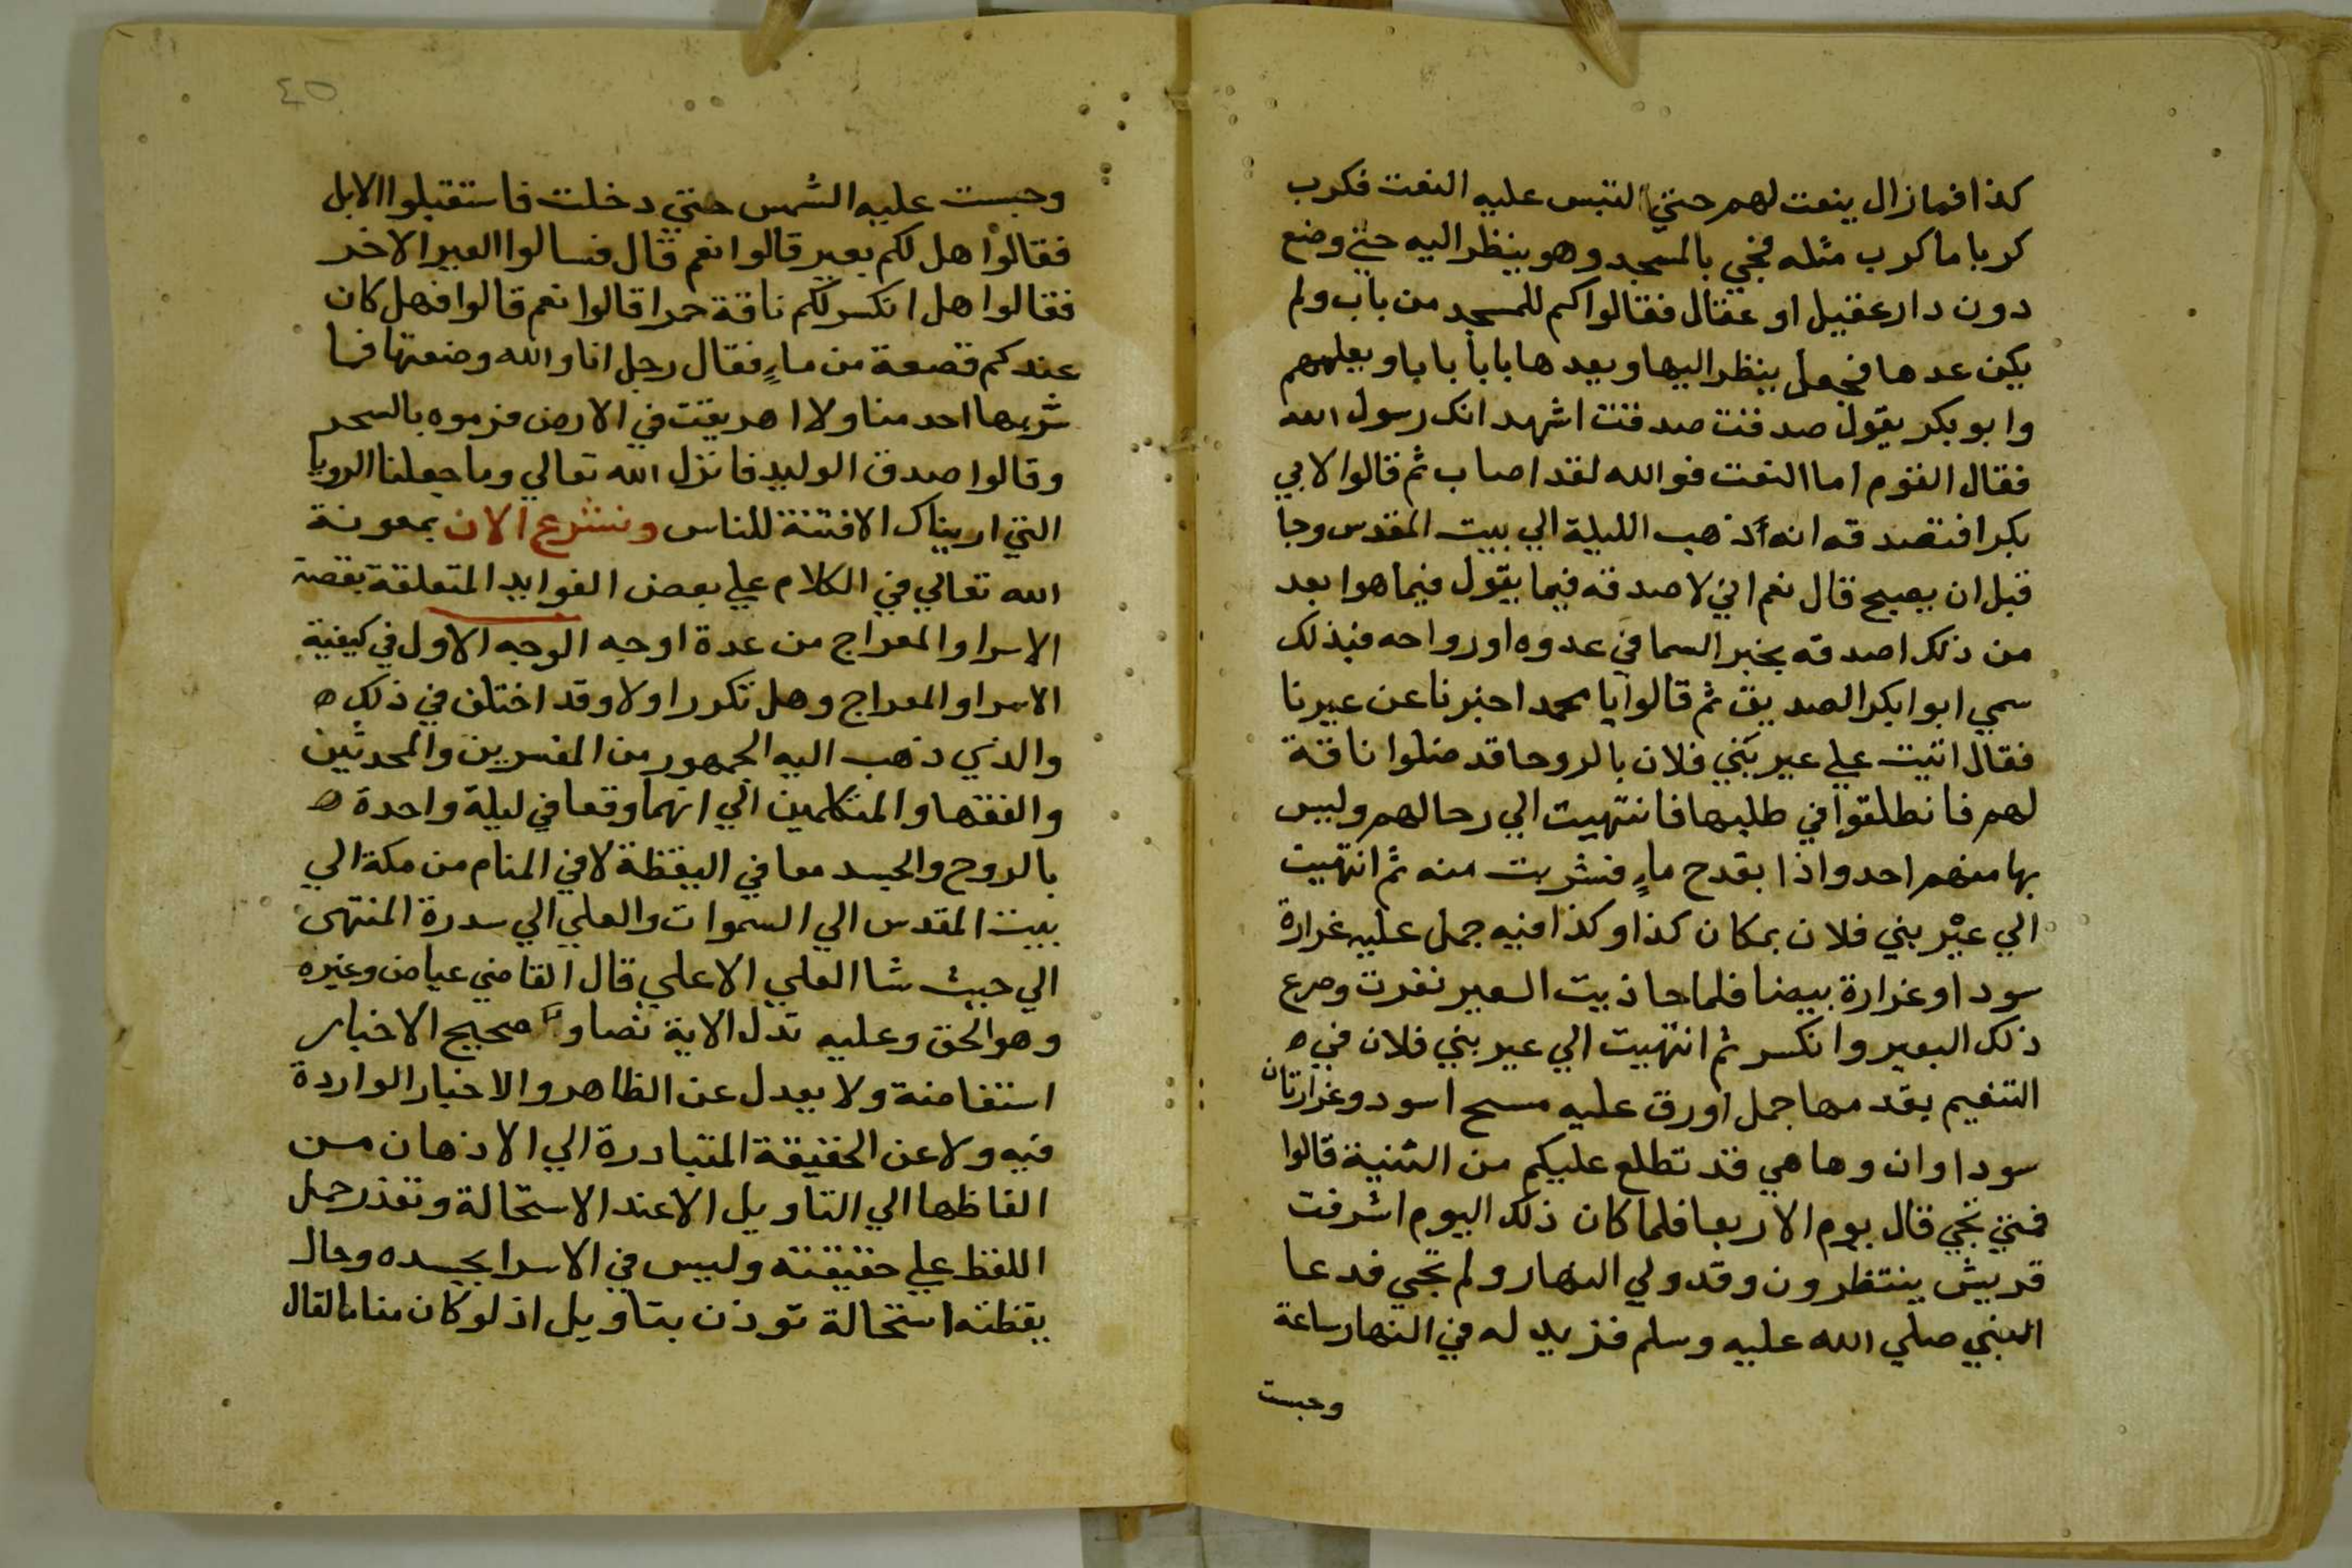 كذا فما زال ينعت لهم حتي التبس عليه النعت فكرب
كربا ما كرب مثله فجي بالمسجد وهو ينظر اليه حتي وضع
دون دار عقيل او عقال فقالوا كم للمسجد من باب ولم
يكن عدها فجعل ينظر اليها ويعدها بابا بابا ويعلمهم
وابو بكر يقول صدقت صدقت اشهد انك رسول الله
فقال القوم اما النعت فوالله لقد اصاب ثم قالوا لابي
بكر افتصدقه انه ذهب الليلة الي بيت المقدس وجا
قبل ان يصبح قال نعم اني لاصدقه فيما يقول فيما هو ابعد
من ذلك اصدقه بخبر السما في غدوه او رواحه فبذلك
سمي ابو ابكر الصديق ثم قالوا يا محمد اخبرنا عن عيرنا
فقال اتيت علي عير بني فلان بالروحا قد ضلوا ناقة
لهم فانطلقوا في طلبها فانتهيت الي رحالهم وليس
بها منهم احد واذا بقدح ماءٍ فشربت منه ثم انتهيت
الي عير بني فلان بمكان كذا وكذا فيه جمل عليه غرارة
سودا وغرارة بيضا فلما حاذيت العير نفرت وصرع
ذلك البعير وانكسر ثم انتهيت الي عير بني فلان في ه
التنعيم يقدمها جمل اورق عليه مسح اسود وغرارتان
سوداوان وها هي قد تطلع عليكم من الثنية قالوا
فمتي تجي قال يوم الاربعا فلما كان ذلك اليوم اشرفت
قريش ينتظرون وقد ولي النهار ولم تجي فدعا
النبي صلي الله عليه وسلم فزيد له في النهار ساعة
وحبست
٤٥
وحبست عليه الشمس حتي دخلت فاستقبلوا الابل
فقالوا هل لكم بعير قالوا نعم قال فسالوا العير الاخر
فقالوا هل انكسر لكم ناقة حمرا قالوا نعم قالوا فهل كان
عندكم قصعة من ماءٍ فقال رجل انا والله وضعتها فما
شربها احد منا ولا اهريقت في الارض فرموه بالسحر
وقالوا صدق الوليد فانزل الله تعالي وما جعلنا الرويا
التي اريناك الا فتنة للناس ونشرع الان بمعونة
الله تعالي في الكلام علي بعض الفوايد المتعلقة بقصة
الاسرا والمعراج من عدة اوجه الوجه الاول في كيفية
الاسرا والمعراج وهل تكرر اولا وقد اختلف في ذلك ه
والذي ذهب اليه الجمهور من المفسرين والمحدثين
والفقها والمتكلمين الي انهما وقعا في ليلة واحدة ه
بالروح والجسد معا في اليقظة لا في المنام من مكة الي
بيت المقدس الي السموات والعلي الي سدرة المنتهى
الي حيث شا العلي الاعلي قال القاضي عياض وغيره
وهو الحق وعليه تدل الاية نصا و صحيح الاخبار
استفاضة ولا يعدل عن الظاهر والاخبار الواردة
فيه ولا عن الحقيقة المتبادرة الي الاذهان من
الفاظها الي التاويل الا عند الاستحالة وتعذر حمل
اللفظ علي حقيقته وليس في الاسرا بجسده وحال
يقظته استحالة توذن بتاويل اذ لو كان مناما لقال